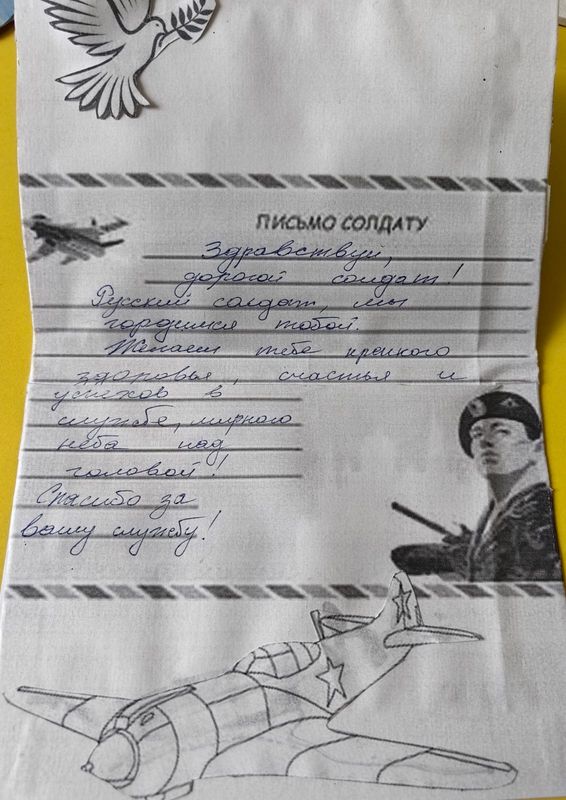 ПИСЬМО СОЛДАТУ
Здравствуй,
дорогой солдат!
Русский солдат, мы
гордимся тобой.
Желаем тебе крепкого
здоровья, счастья и
успехов в
службе, мирного
неба над
головой!
Спасибо за
вашу службу!